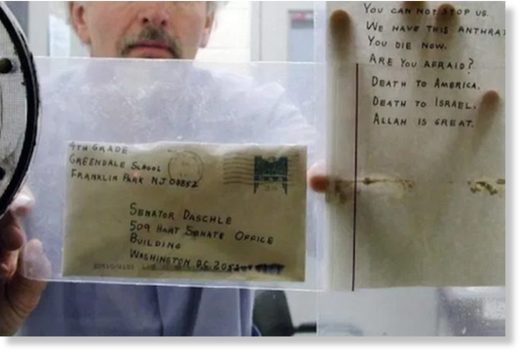 4TH GRADE
GREENDALE SCHOOL
FRANKLIN PARK NJ 08852
SENATOR DASCHLE
509 HART SENATE OFFICE
BUILDING
WASHINGTON D.C. 205
YOU CAN NOT STOP US.
WE HAVE THIS ANTHRA
YOU DIE NOW.
ARE YOU AFRAID?
DEATH TO AMERICA.
DEATH TO ISRAEL.
ALLAH IS GREAT.